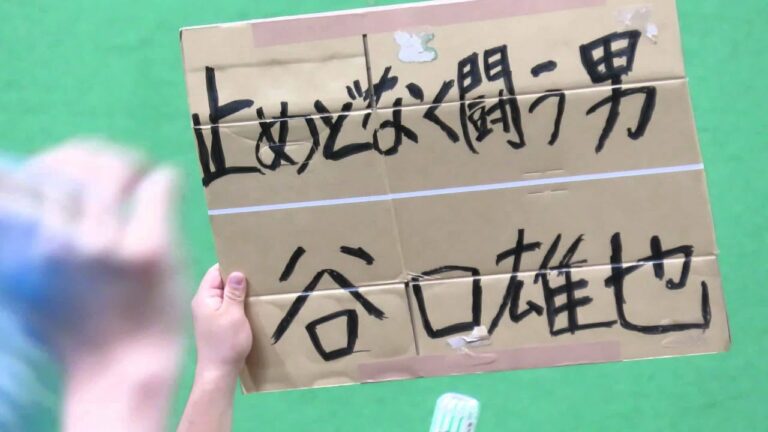 止めどなく闘う男
谷口雄也